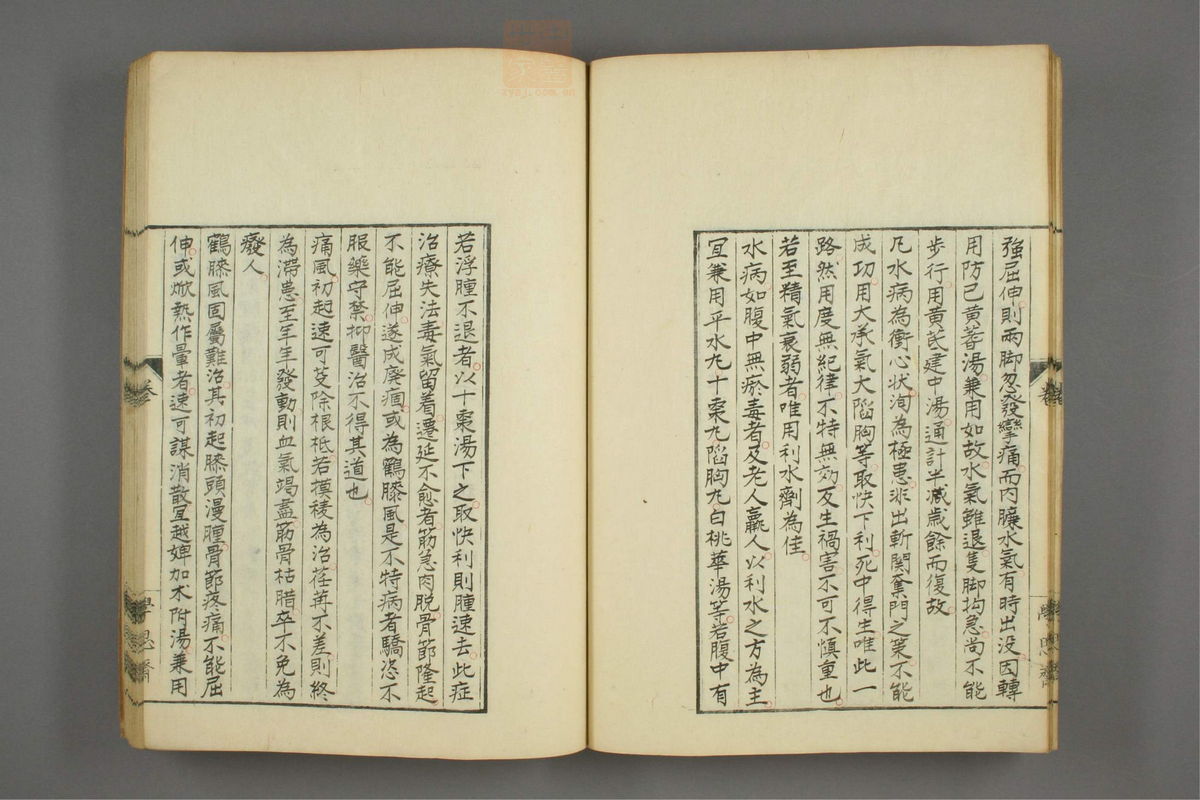 強屈伸則兩脚忽發攣痛而內臟水氣有時出没因轉
用防已黄蓍湯兼用如故水氣雖退隻脚拘急尚不能
步行用黄芪建中湯通計半減歲餘而復故
凡水病為衝心状洶為極患非出斬関奪門之策不能
成功用大承氣大陷胸等取快下利死中得生唯此一
路然用度無紀律不特無効反生禍害不可不慎重也
若至精氣衰弱者唯用利水劑為佳
水病如腹中無瘀毒者及老人羸人以利水之方為主
宜兼用平水丸十棗丸陷胸丸白桃華湯等若腹中有
若浮腫不退者以十棗湯下之取快利則腫速去此症
治療失法毒氣留着遷延不愈者筋急肉脱骨節隆起
不能屈伸遂成廃痼或為鶴膝風是不特病者驕恣不
服藥守禁抑醫治不得其道也
痛風初起速可芟除根柢若摸稜為治荏苒不差則終
為滞患至年年發動則血氣竭盡筋骨枯腊卒不免為
癈人
鶴膝風固屬難治其初起膝頭漫腫骨節疼痛不能屈
伸或焮熱作暈者速可謀消散宜越婢加朮附湯兼用
學思齋